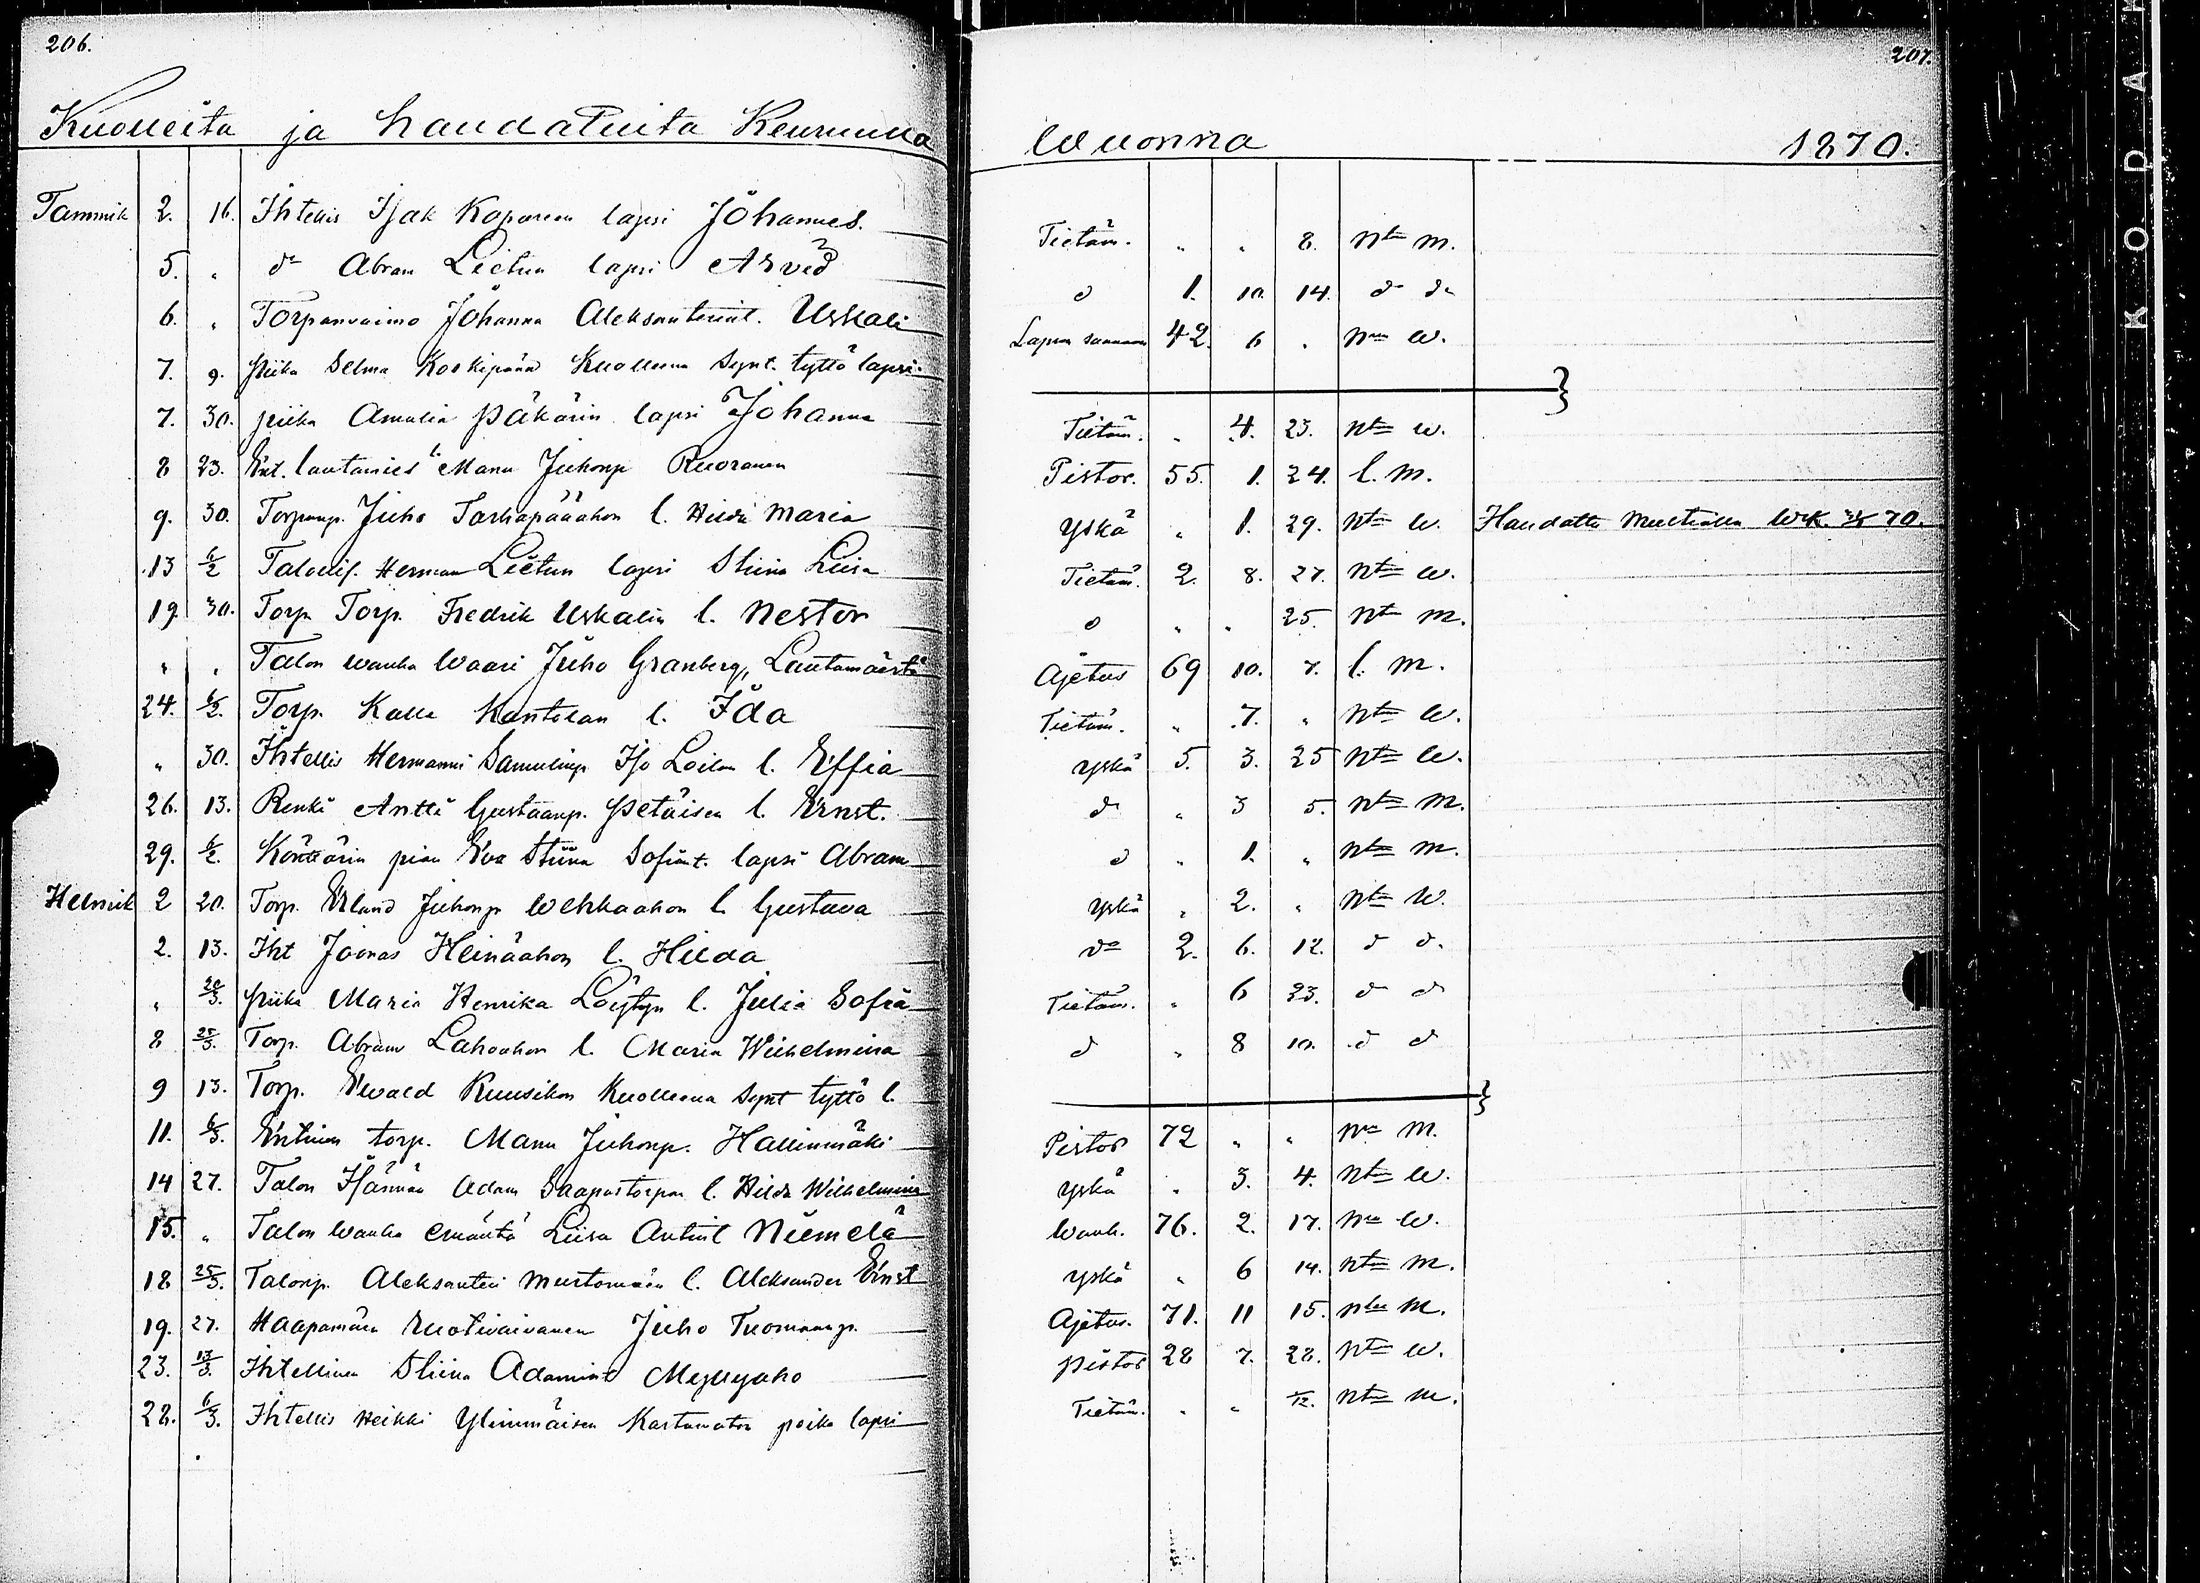 206.
Kuolleita ja haudatuita Keuruulla
Tammik 2. 16. Ihtellis Isak Kapareen lapsi Johannes.
5. " do Abram Lietun lapsi Arvid
6. " Torpanvaimo Johanna Aleksanterint. Uskali
7. 9. piika Selma Koskipään Kuolleena Synt. tyttö lapsi.
7. 30. piika Amalia Päkärin lapsi Johanna
8 23. Ent. lautamies Manu Juhonp Ruoranen
9. 30. Torpanp. Juho Tarhapääahon l. Hilda Maria
13 6/2 Talollis. Herman Lietun lapsi Stiina Liisa
19. 30. Torp. Torp. Fredrik Uskalin l. Nestor
" " Talon wanha Waari Juho Granberg, Lautamäestä
24. 6/2. Torp. Kalle Kantolan l. Ida
" 30. Ihtellis Hermanni Samulinp Iso Loilan l. Effia
26. 13. Renki Antti Gustaanp. Petäisen l. Ernst.
29. 6/2. pian Eva Stiina Sofiant. lapsi Abram
Helmik 2 20. Torp. Erland Juhonp Wehkaahon l. Gustava
2. 13. Iht Joonas Heinäahon l. Hilda
" 20/3. piika Maria Henrika Löytyn l. Julia Sofia
8 25/3. Torp. Abram Lahoahon l. Maria Wilhelmina
9 13. Torp. Ewald Kuusikon Kuolleena Synt tyttö l.
11. 6/3. Entinen torp. Manu Juhonp. Hallinmäki
14 27. Talon Isännän Adam Saapastorpan l. Hilda Wilhelmina
15. " Talon Wanha emäntä Liisa Antint Niemelä
18 25/3. Talonp. Aleksanteri Murtomäen l. Aleksander Ernst
19. 27. Haapamäen Ruotivaivanen Juho Tuomaanp.
23. 13/3. Ihtellinen Stiina Adamint Myllyaho
28. 6/3. Ihtellis Heikki Ylimmäisen Kastamaton poika lapsi
207.
Wuonna 1870.
Tietäm. " " 8. Ntn m.
d 1. 10. 14. do do
Lapsen saannan 42. 6 " Nn w.
Tietäm. " 4. 23. Ntn w.
Pistos. 55. 1. 24. l. m.
Yskä " 1. 29. Ntn w. Haudattu Multialla
Tietäm. 2. 8. 27. Ntn w.
d " " 25. Ntn m.
Ajetus 69 10. 7. l. m.
Tietäm. " 7. " Ntn w.
Yskä 5. 3. 25 Ntn w.
do " 3 5. Ntn m.
d " 1. " Ntn m.
Yskä " 2. " Ntn w.
do 2. 6. 12. d d.
Tietäm. " 6 23. d d
d " 8 10. d d
Pistos 72 " " Nn m.
Yskä " 3. 4. Ntn w.
Wanh. 76. 2. 17. Nn w.
Yskä " 6 14. Ntn m.
Ajetus. 71. 11 15. m.
Pistos 28 7. 28. Ntn w.
Tietäm. " " 1/12. Ntn m.
KODAK